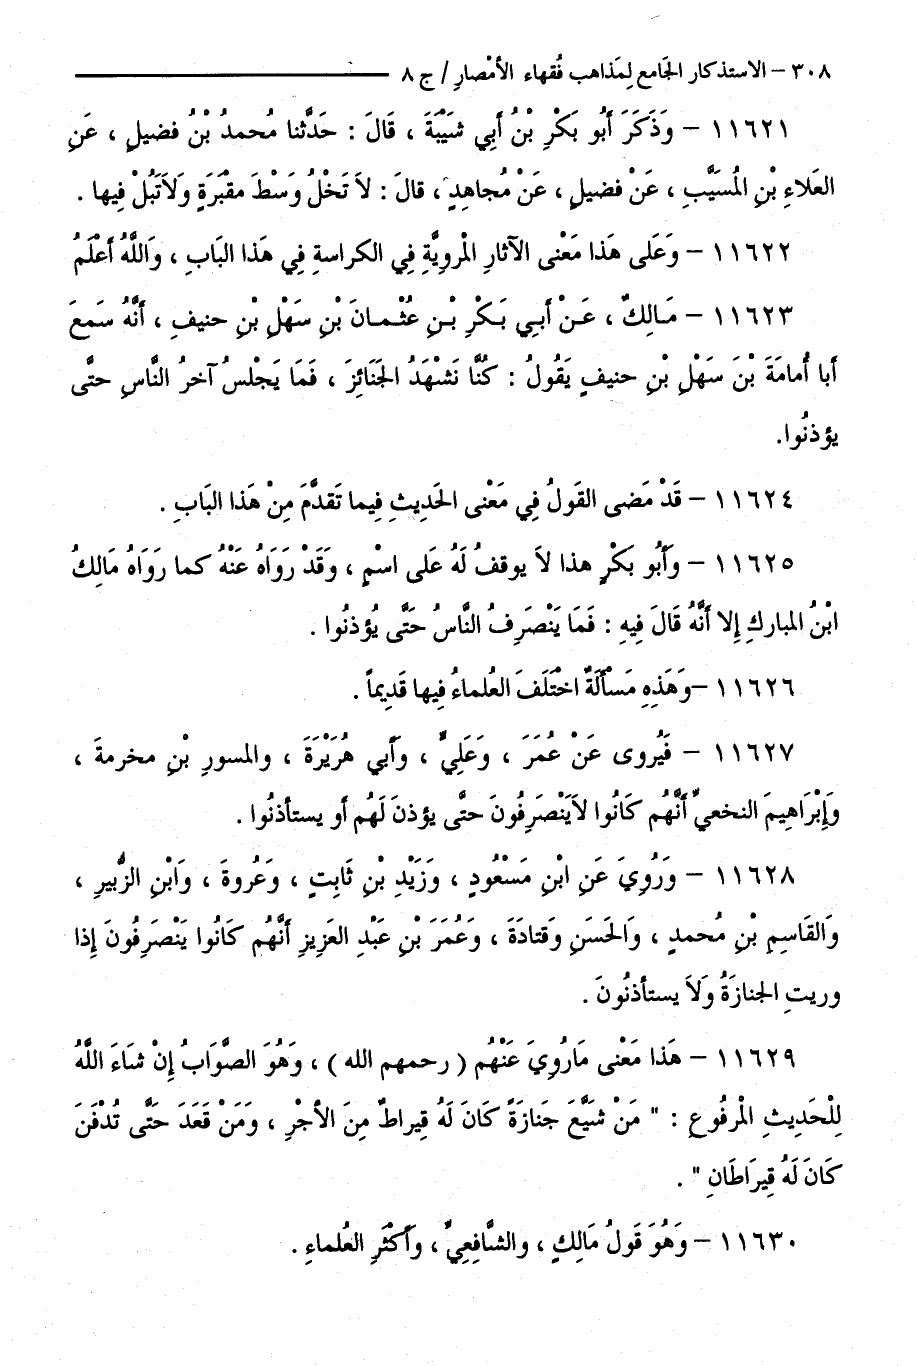 ٣٠٨ – الاستذكار الجَامع لِمَذاهب فُقهاء الأمْصارِ / ج ٨
١١٦٢١ – وَذَكَرَ أَبُو بَكْرِ بْنُ أبِي شَيْبَةَ ، قَالَ : حَدَّثنا مُحمدُ بْنُ فضيلٍ ، عَنِ
العَلاءِ بْنِ المُسَيَّبِ ، عَنْ فضيلٍ ، عَنْ مُجاهدٍ ، قالَ : لاَ تَخْلُ وَسْطَ مقْبَرَةٍ وَلاَتَبُلْ فِيها .
١١٦٢٢ – وَعَلى هَذا مَعْنى الآثارِ المْرويَّةِ فِي الكراسةِ فِي هَذا البَابِ ، وَاللَّهُ أعْلَمُ
١١٦٢٣ – مَالِكٌ ، عَنْ أبِي بَكْرِ بْنِ عُثْمانَ بْنِ سَهْلِ بْنِ حنيفٍ ، أنَّهُ سَمعَ
أبا أُمامَةَ بْنَ سَهْلِ بْنِ حنيفٍ يَقُولُ : كُنَّا نَشْهَدُ الجَنَائِزَ ، فَمَا يَجْلسُ آخرُ النَّاسِ حتَّى
يؤذنُوا.
١١٦٢٤ – قَدْ مَضى القَولُ فِي مَعْنى الحَديثِ فِيما تَقدَّمَ مِنْ هَذا البَابِ .
١١٦٢٥ – وَأَبُو بَكْرٍ هذا لاَ يوقفُ لَهُ عَلى اسْمٍ ، وَقَدْ رَوَاهُ عَنْهُ كما رَوَاهُ مَالِكُ
ابْنُ المباركِ إلا أنَّهُ قَالَ فِيهِ : فَمَا يَنْصَرِفُ النَّاسُ حَتَّى يُؤذنُوا .
١١٦٢٦ –وَهَذِهِ مَسْألَةٌ اخْتَلَفَ العُلماءُ فِيها قَدِيماً .
١١٦٢٧ – فَيُروى عَنْ عُمَرَ ، وَعَلِيٍّ ، وَأَبي هُرَيْرَةَ ، والمسورِ بْنِ مخرمةَ ،
وَإبْرَاهِيمَ النخعيِّ أنَّهُم كَانُوا لاَيَنْصَرِفُونَ حتَّى يؤذنَ لَهُم أو يستأذنُوا .
١١٦٢٨ – وَرُوِيَ عَنِ ابْنِ مَسْعُودٍ ، وَزَيْدِ بْنِ ثَابِتٍ ، وَعُروةَ ، وَابْنِ الزُّبيرِ ،
وَالقَاسِمِ بْنِ مُحمدٍ ، وَالحَسَنِ وَقتادَةَ ، وَعُمَرَ بْنِ عَبْدِ العَزِيزِ أنَّهُم كَانُوا يَنْصَرِفُونَ إذا
وريتِ الجنازَةُ وَلاَ يستأذنُونَ .
١١٦٢٩ – هَذا مَعْنى مَارُوِيَ عَنْهُم ( رحمهم الله ) ، وَهُوَ الصَّوَابُ إنْ شَاءَ اللَّهُ
لِلْحَدِيثِ المْرفُوعِ : " مَنْ شَيَّعَ جَنازَةً كَانَ لَهُ قِيراطٌ مِنَ الأجْرِ ، وَمَنْ قَعَدَ حَتَّى تُدْفَنَ
كَانَ لَهُ قِيرَاطَانِ " .
١١٦٣٠ – وَهُوَ قَولُ مَالِكٍ ، والشَّافِعِيِّ ، وَأكْثَرِ العُلماءِ .